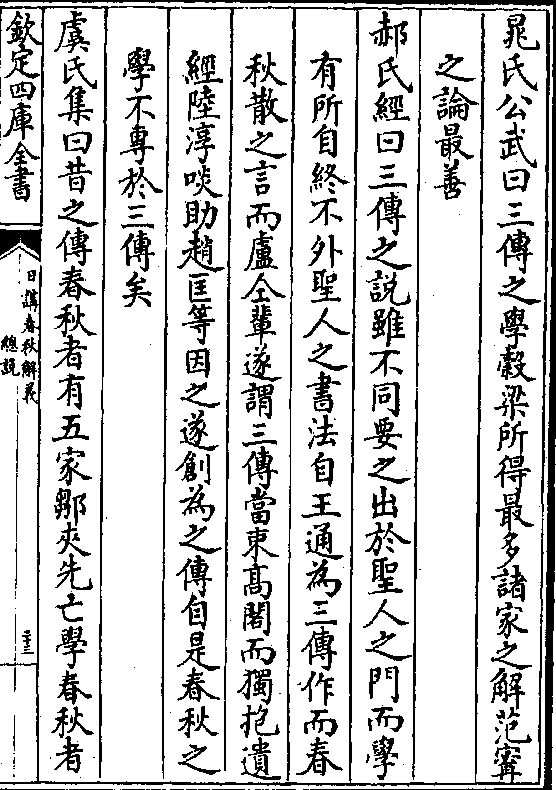 晁氏公武曰三傳之學穀梁所得最多諸家之解范甯
之論最善
郝氏經曰三傳之說雖不同要之出於聖人之門而學
有所自終不外聖人之書法自王通為三傳作而春
秋散之言而盧仝輩遂謂三傳當束高閣而獨抱遺
經陸淳啖助趙匡等因之遂創為之傳自是春秋之
學不專於三傳矣
虞氏集曰昔之傳春秋者有五家鄒夾先亡學春秋者
欽定四庫全書
日講春秋解義
總說
二十三